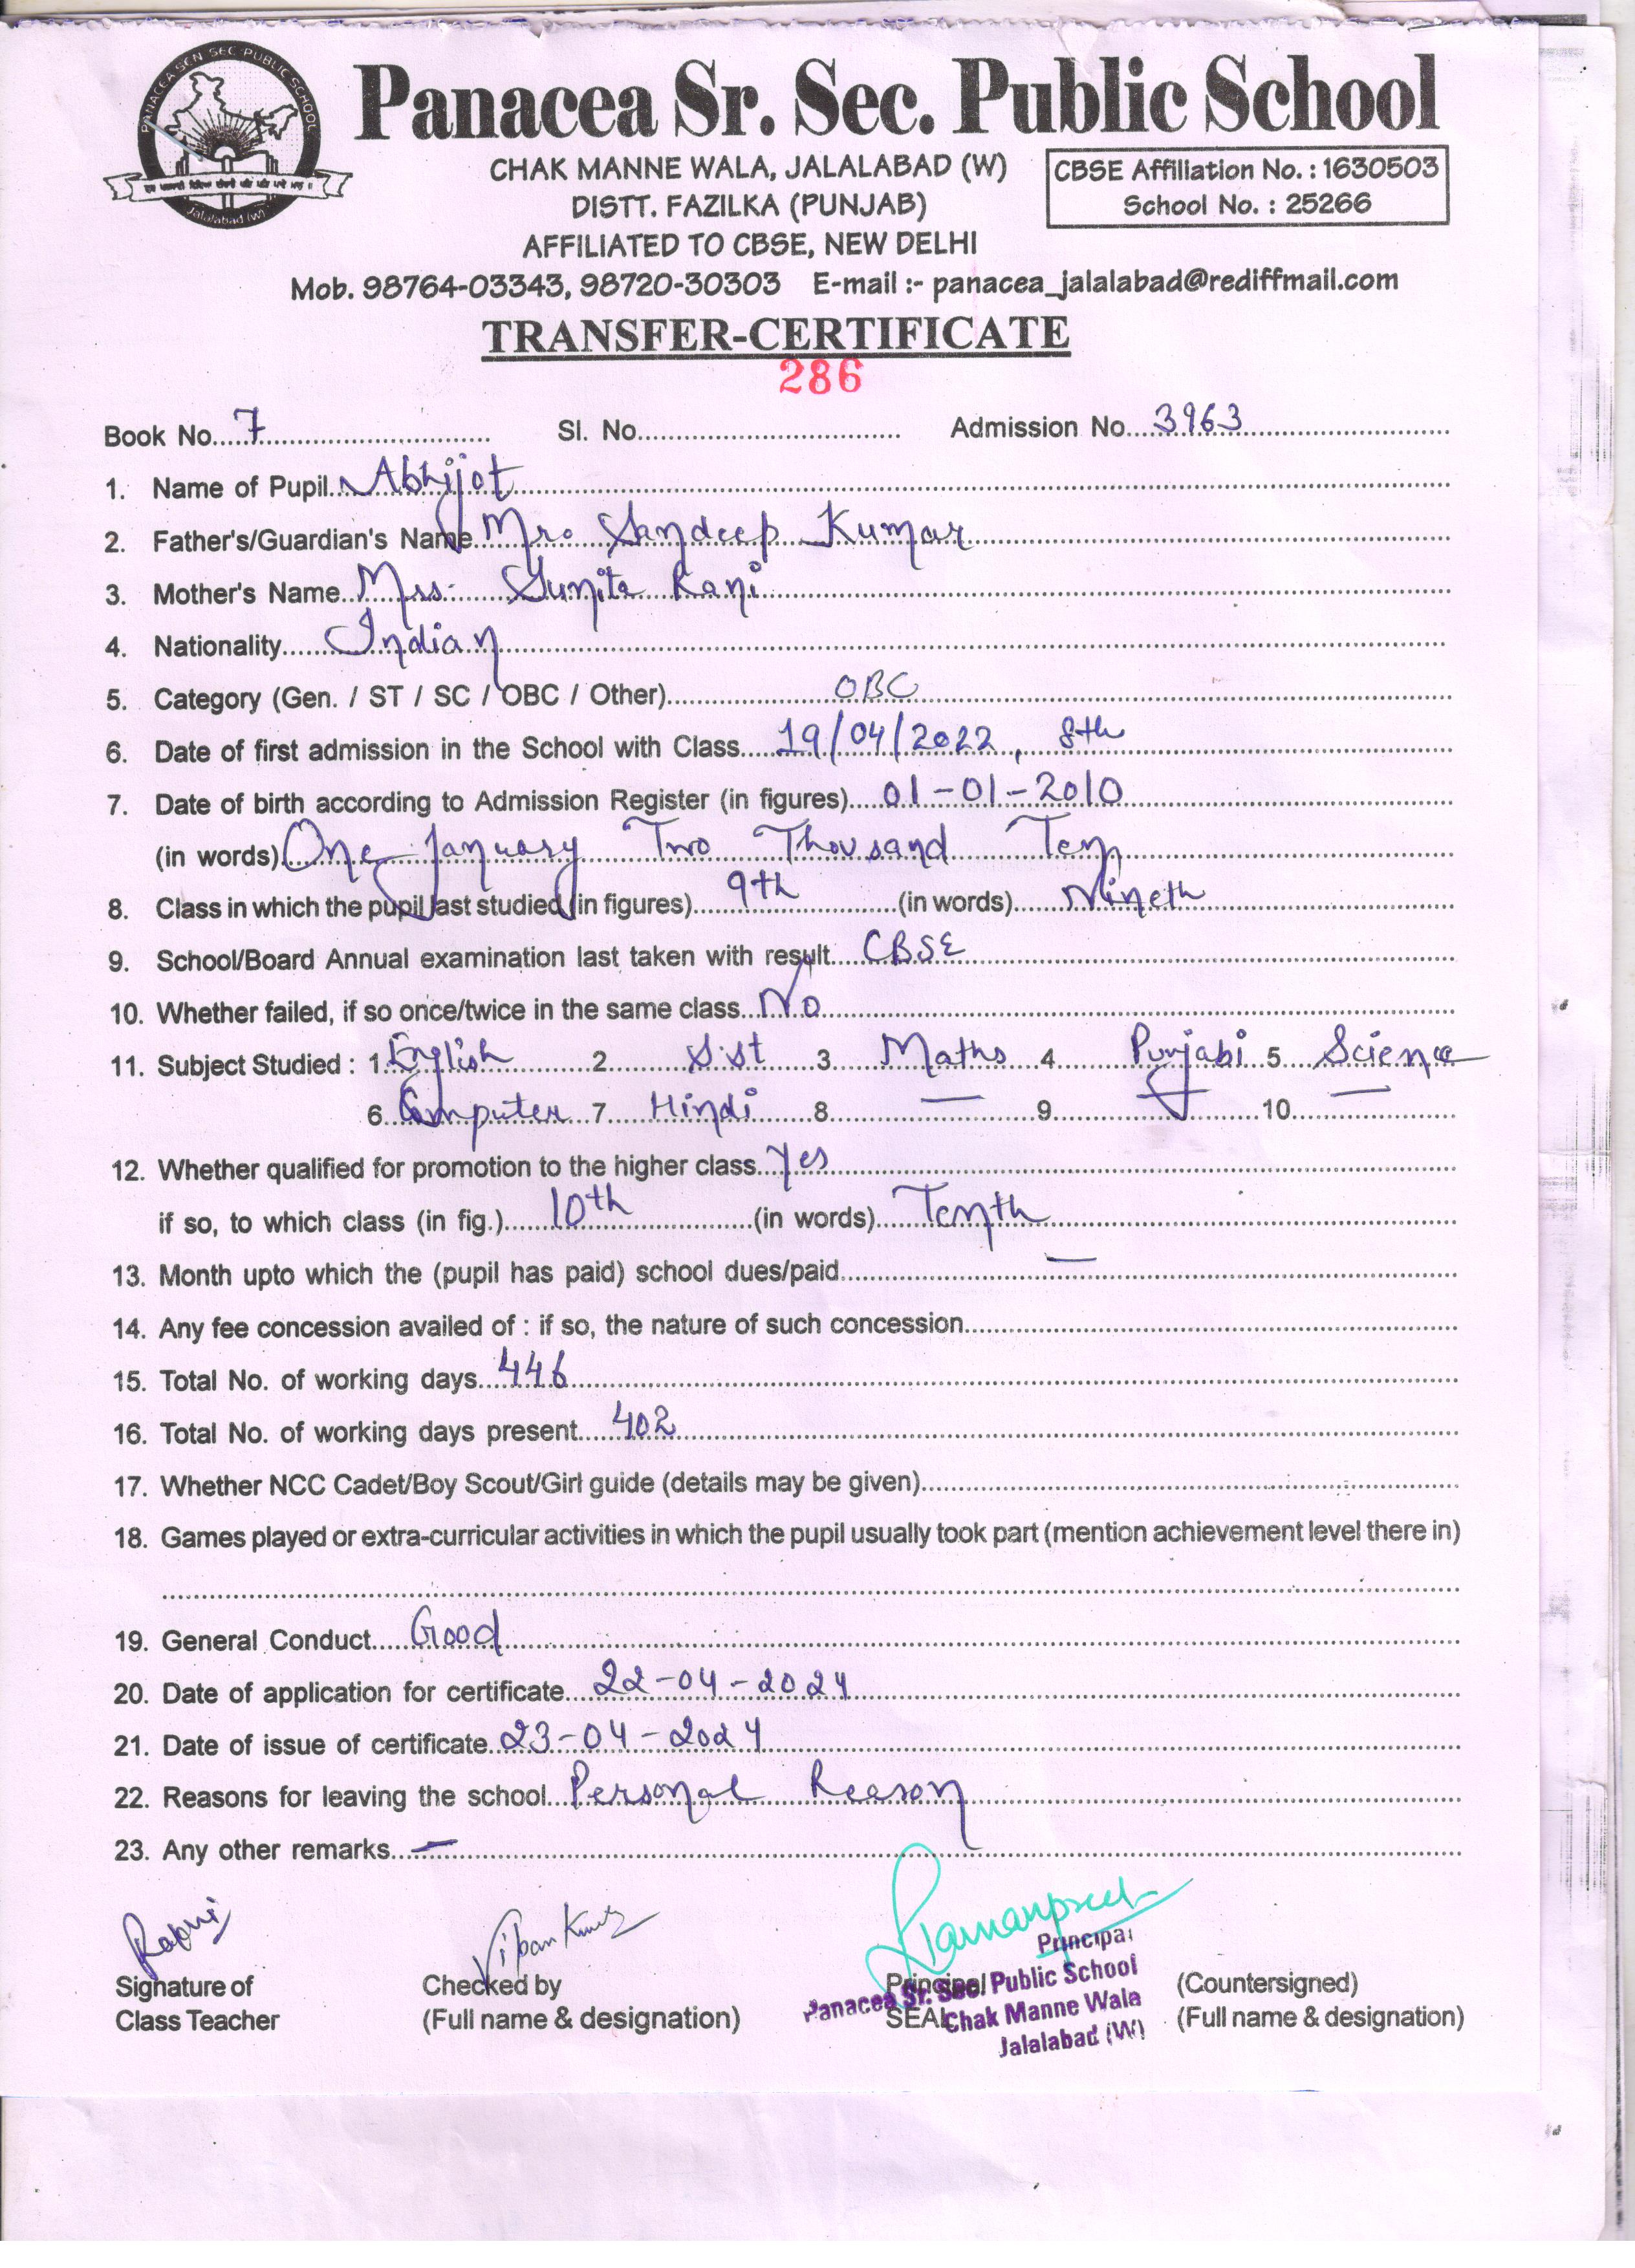 PANACEA SCN SEC PUBLIC SCHOOL
Jalalabad (w)
Panacea Sr. Sec. Public School
CHAK MANNE WALA, JALALABAD (W)
DISTT. FAZILKA (PUNJAB)
AFFILIATED TO CBSE, NEW DELHI
CBSE Affiliation No. : 1630503
School No. : 25266
Mob. 98764-03343, 98720-30303 E-mail :- panacea_jalalabad@rediffmail.com
TRANSFER-CERTIFICATE
286
Book No. 7 Sl. No. Admission No. 3963
1. Name of Pupil Abhijot
2. Father's/Guardian's Name Mr. Sandeep Kumar
3. Mother's Name Mrs. Sunita Rani
4. Nationality Indian
5. Category (Gen. / ST / SC / OBC / Other) OBC
6. Date of first admission in the School with Class 19/04/2022, 8th
7. Date of birth according to Admission Register (in figures) 01-01-2010
(in words) One January Two Thousand Ten
8. Class in which the pupil last studied (in figures) 9th (in words) Nineth
9. School/Board Annual examination last taken with result CBSE
10. Whether failed, if so once/twice in the same class No
11. Subject Studied : 1 English 2 S.st 3 Maths 4 Punjabi 5 Science
6 Computer 7 Hindi 8 — 9 — 10 —
12. Whether qualified for promotion to the higher class Yes
if so, to which class (in fig.) 10th (in words) Tenth
13. Month upto which the (pupil has paid) school dues/paid —
14. Any fee concession availed of : if so, the nature of such concession
15. Total No. of working days 446
16. Total No. of working days present 402
17. Whether NCC Cadet/Boy Scout/Girl guide (details may be given)
18. Games played or extra-curricular activities in which the pupil usually took part (mention achievement level there in)
19. General Conduct Good
20. Date of application for certificate 22-04-2024
21. Date of issue of certificate 23-04-2024
22. Reasons for leaving the school Personal Reason
23. Any other remarks —
Vipan Kumar
Ramanpreet
Principal
Panacea Sr. Sec. Public School
Chak Manne Wala
Jalalabad (W)
Signature of Checked by Principal (Countersigned)
Class Teacher (Full name & designation) SEAL (Full name & designation)